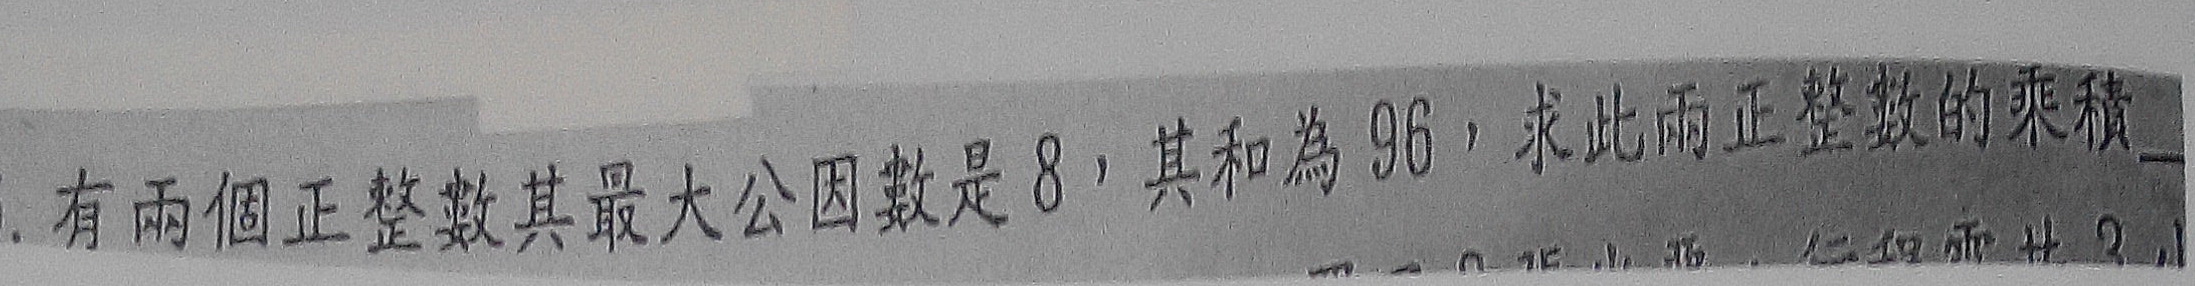 . 有兩個正整數其最大公因數是 8，其和為 96，求此兩正整數的乘積